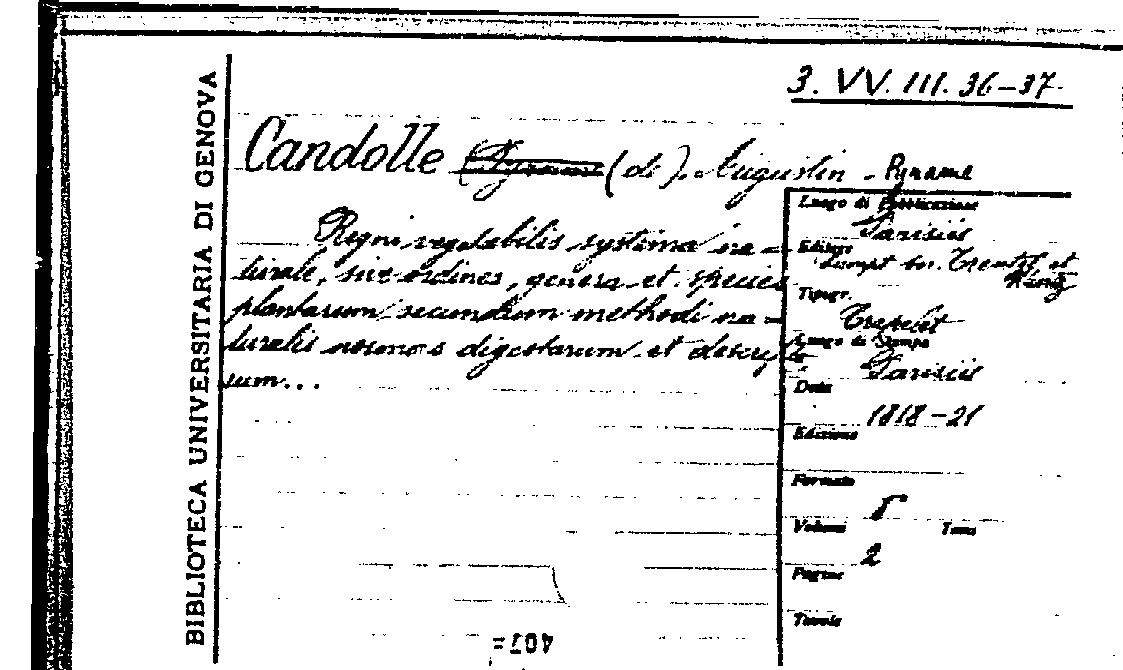 BIBLIOTECA UNIVERSITARIA DI GENOVA
3. VV. III. 36-37
Candolle (de). Augustin - Pyrame
Regni vegetabilis systema na =
turale, sive ordines, genera et species
plantarum secundum methodi na =
turalis normas digestarum et descrip
rum...
Luogo di Pubblicazione
Parisiis
Editore
sumpt soc. Treuttel et
Würtz
Tipogr.
Luogo di Stampa
Parisiis
Data
1818-21
Edizione
Formato
8°
Volumi Tomi
2
Pagine
Tavole